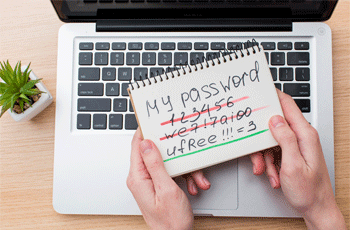 My PASSWORD
123456
we7!7a100
ufRee!!!=3